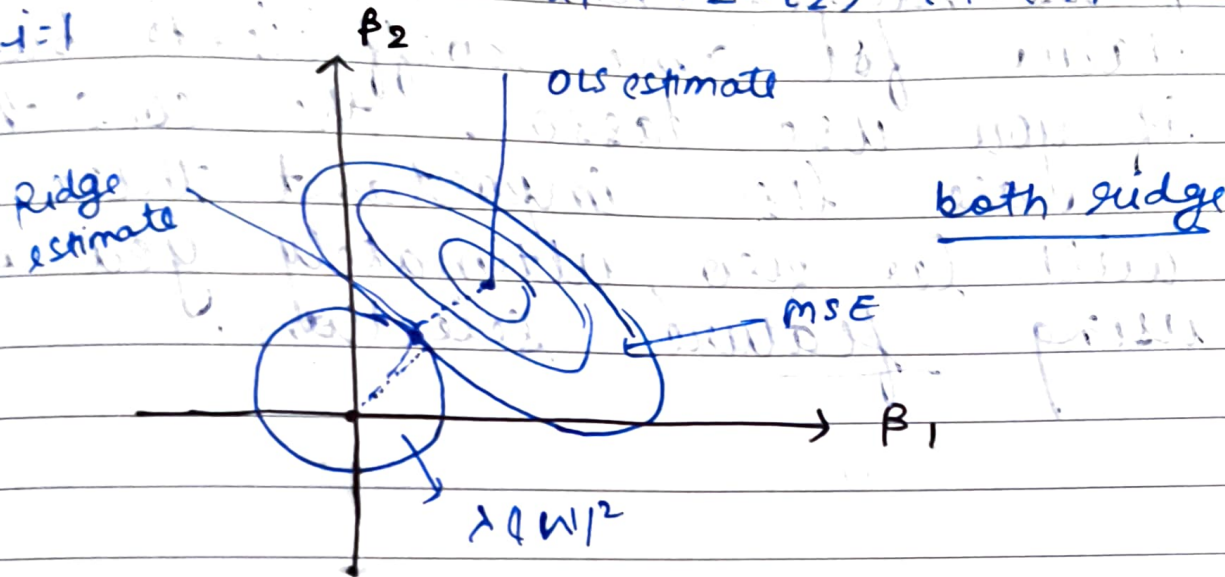 i=1
β2
OLS estimate
Ridge
estimate
both ridge
MSE
β1
λ||W||²